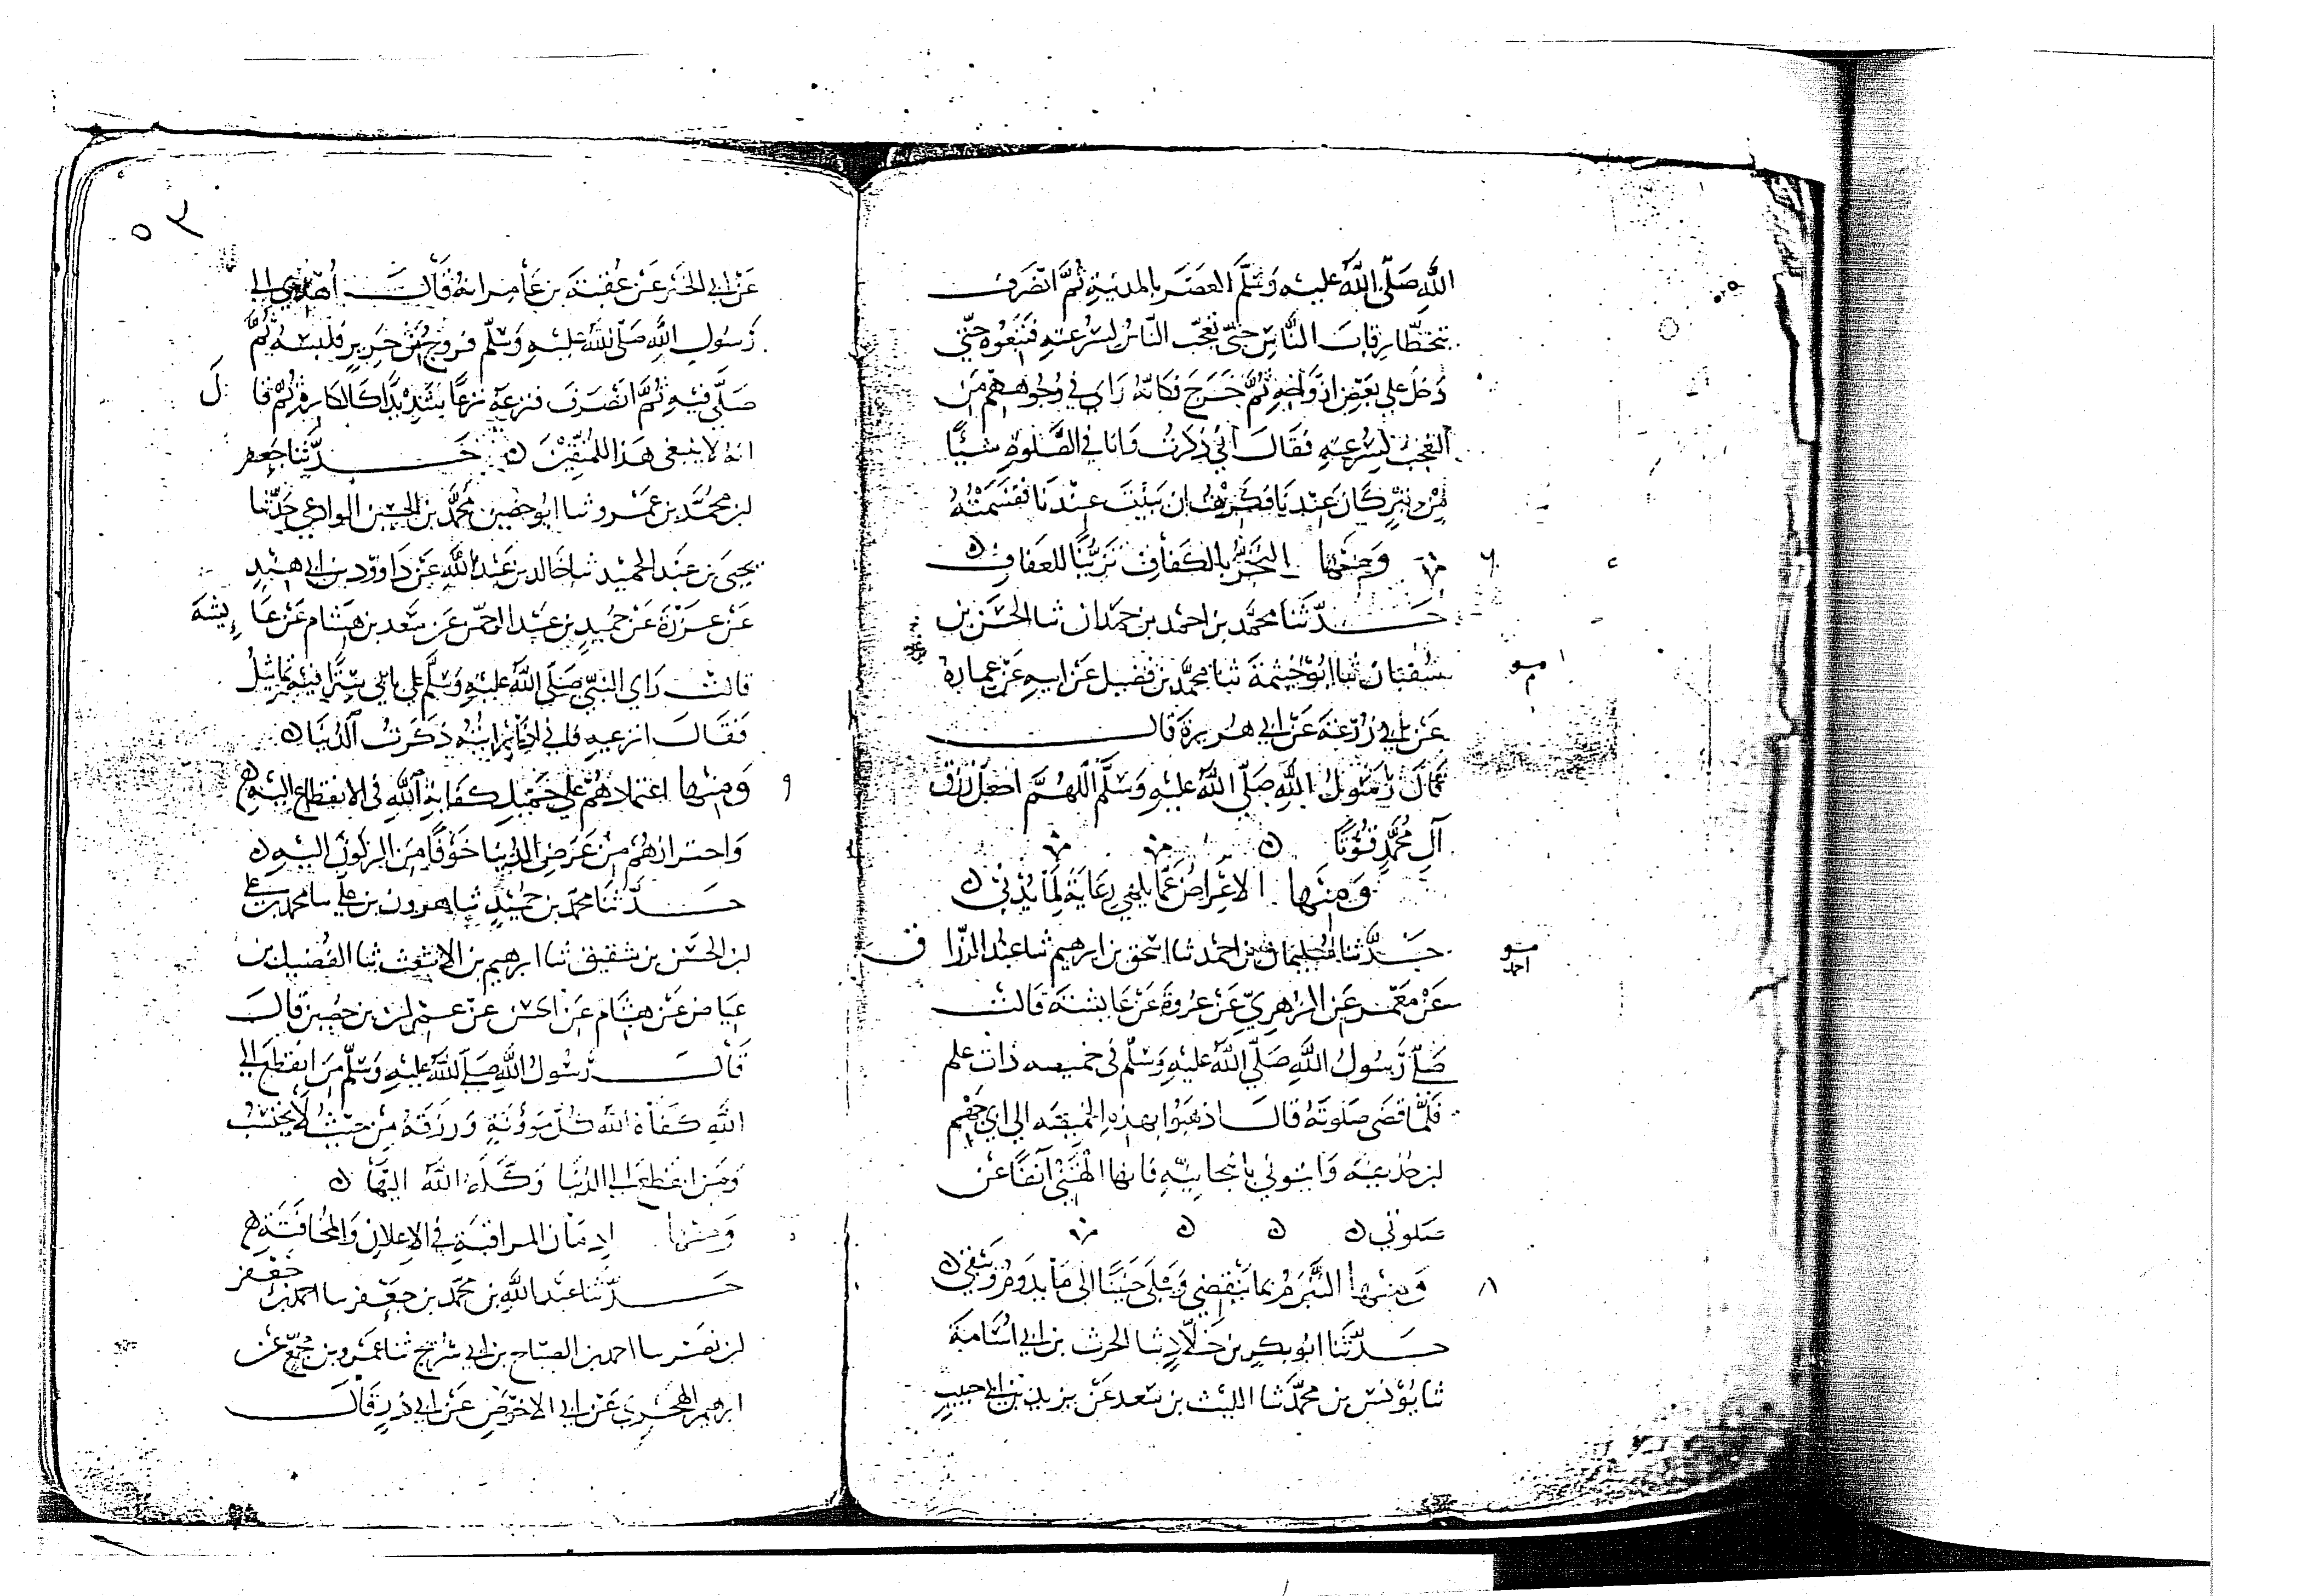 الله صَلّى الله عليه وَسَلّم العصر بالمدينة ثمّ انصَرَف
يتخطّا رقاب النّاس حتّى تعجّب النّاسُ لسُرعته فتبعُوه حتّى
دَخل على بعض ازوَاجه ثمَّ خَرَجَ فكانّهُ رَاى في وُجُوههم من
العَجب لسُرعته فقَالَ انّي ذكرتُ وَانا في الصَّلوة شيًا
مِن تبرٍ كَانَ عندنا فكرهتُ ان يبيت عندنا فقسَمتُهُ
وَمنهَا التحَرّي بالكفاف تزيّنًا للعفاف
حَدّثنا محمّد بن احمد بن حمدان ثنا الحسَن بن
سُفيان ثنا ابُو خيثمة ثنا محمّد بن فضيل عَن ابيه عَن عمارة
عَن ابي زُرعَة عَن ابي هريرة قال
قَالَ رسُولُ الله صَلّى الله عليه وَسَلّم اللهُمَّ اجعَل رزق
آلِ محُمَّدٍ قُوتًا
وَمنهَا الاعرَاضُ عَمّا يلهي رعَايَةً لِمَا يُدني
حَدَّثنا سُليمان بن احمد ثنا اسحق بن ابرهيم ثنا عبد الرزّاق
عَنْ مَعْمر عَن الزُهريّ عَن عروة عَن عَايشة قالت
صَلّى رَسُولُ الله صَلّى الله عليه وَسَلّم في خميصه ذات علم
فَلمَّا قضَى صَلوتهُ قالَ اذهَبُوا بهذه الخميصَه الى ابي جهم
بن حذيفة وَايتوني بانبجانيّه فانها الهَتني آنفًا عَن
صَلوتي
وَمنهَا التَّبَرّمُ بمَا يَنقضي وَيَبلَى حَنينًا الى مَا يدُومُ وَيَبقى
حَدَّثنا ابو بكر بن خلّادٍ ثنا الحرث بن ابي اسَامة
ثنا يُونسُ بن محمّد ثنا الليث بن سَعد عَن يزيد بن ابي حبيب
٥٣
عَن ابي الخير عَن عُقبَة بن عَامر انهُ قَالَ أُهْديَ الى
رَسُول الله صَلّى الله عليه وَسَلّم فروجُ حَرير فلبسَهُ ثمَّ
صَلّى فيه ثمَّ انصَرَفَ فنزعَهُ نزعًا شَديدًا كالكاره لهُ ثمّ قالَ
انهُ لا ينبغي هَذا للمتّقينَ حَدَّثنا جَعفر
بن محُمَّد بن عَمرو ثنا ابو حصين محمَّد بن الحسين الوادعي حدَّثنا
يحيى بن عَبد الحميد ثنا خَالد بن عَبد الله عَن دَاوود بن ابي هندٍ
عَن عَزرَة عَن حُميد بن عَبد الرحمن عَن سَعد بن هشام عَن عَايِشَة
قالت رَاى النبيّ صَلّى الله عليه وَسَلّم على بابي سِترًا فيه تماثيلُ
فَقَالَ انزعيه فاني اذا رَايتهُ ذكرتُ الدُنيا
وَمنهَا اعتمادهُم على جَميل كفَايَة الله في الانقطاع اليه
وَاحترازهُم من عَرَض الدُنيا خَوفًا من الركون اليه
حَدَّثنَا محمّد بن حُميدٍ ثنا هرون بن علي سا محمد بن علي
بن الحسَن بن شقيق ثنا ابرهيم بن الاشعث ثنا الفُضيل بن
عياض عَن هشام عَن الحسن عَن عمران بن حصين قالَ
قَالَ رَسُولُ الله صَلّى الله عليه وَسَلّم مَن انقطَعَ الى
الله كفَاهُ اللهُ كُلَّ مَؤونَةٍ وَرَزَقَهُ مِن حيث لا يحتسبُ
وَمَن انقطعَ الى الدُنيا وَكَلَهُ اللهُ اليهَا
وَمنهَا ادمَان المراقبَة في الاعلان وَالمُخافتَة
حَدَّثنا عَبد الله بن محمّد بن جعفر سا احمد بن جعفر
بن نصر سا احمد بن الصبّاح بن ابي سُريج ثنا عَمرو بن مُجمّع عَن
ابرهيم الهجري عَن ابي الاحوَص عَن ابي ذرٍ قَالَ